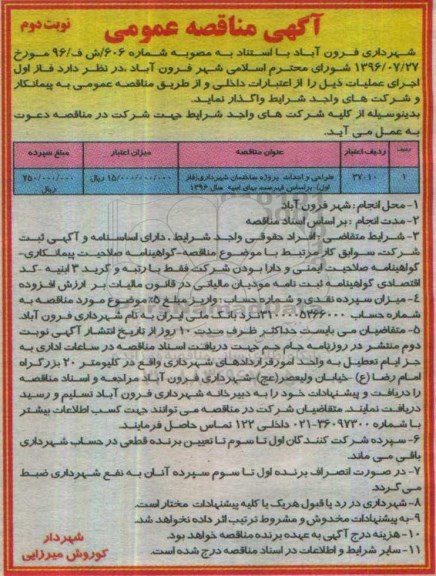 آگهی مناقصه عمومی
نوبت دوم
شهرداری فرون آباد با استناد به مصوبه شماره ۶۰۶/ش ف/۹۶ مورخ
۱۳۹۶/۰۷/۲۷ شورای محترم اسلامی شهر فرون آباد ،در نظر دارد فاز اول
اجرای عملیات ذیل را از اعتبارات داخلی و از طریق مناقصه عمومی به پیمانکار
و شرکت های واجد شرایط واگذار نماید.
بدینوسیله از کلیه شرکت های واجد شرایط جهت شرکت در مناقصه دعوت
به عمل می آید.
ردیف ردیف اعتبار عنوان مناقصه میزان اعتبار مبلغ سپرده
۱ ۳۷/۱۰ طراحی و احداث پروژه ساختمان شهرداری(فاز ۱۵/۰۰۰/۰۰۰/۰۰۰ ریال ۷۵۰/۰۰۰/۰۰۰
اول) براساس فهرست بهای ابنیه سال ۱۳۹۶ ریال
۱- محل انجام : شهر فرون آباد
۲- مدت انجام : بر اساس اسناد مناقصه
۳- شرایط متقاضی : افراد حقوقی واجد شرایط ، دارای اساسنامه و آگهی ثبت
شرکت، سوابق کار مرتبط با موضوع مناقصه-گواهینامه صلاحیت پیمانکاری-
گواهینامه صلاحیت ایمنی و دارا بودن شرکت فقط با رتبه و گرید ۳ ابنیه -کد
اقتصادی گواهینامه ثبت نامه مودیان مالیاتی در قانون مالیات بر ارزش افزوده
۴- میزان سپرده نقدی و شماره حساب : واریز مبلغ ۵٪ موضوع مورد مناقصه به
شماره حساب ۲۱۷۰۰۰۵۲۶۶۰۰۰ نزد بانک ملی ایران به نام شهرداری فرون آباد.
۵- متقاضیان می بایست حداکثر ظرف مدت ۱۰ روز از تاریخ انتشار آگهی نوبت
دوم منتشر در روزنامه جام جم جهت دریافت اسناد مناقصه در ساعات اداری به
جز ایام تعطیل به واحد امور قراردادهای شهرداری واقع در کیلومتر ۲۰ بزرگراه
امام رضا (ع) -خیابان ولیعصر(عج)- شهرداری فرون آباد مراجعه و اسناد مناقصه
را دریافت و پیشنهادات خود را به دبیرخانه شهرداری فرون آباد تسلیم و رسید
دریافت نمایند. متقاضیان شرکت در مناقصه می توانند جهت کسب اطلاعات بیشتر
با شماره ۳۶۰۹۷۳۰۰-۰۲۱ داخلی ۱۲۲ تماس حاصل فرمایند.
۶- سپرده شرکت کنندگان اول تا سوم تا تعیین برنده قطعی در حساب شهرداری
باقی می ماند.
۷- در صورت انصراف برنده اول تا سوم سپرده آنان به نفع شهرداری ضبط
می گردد.
۸-شهرداری در رد یا قبول هریک یا کلیه پیشنهادات مختار است.
۹-به پیشنهادات مخدوش و مشروط ترتیب اثر داده نخواهد شد.
۱۰- هزینه درج آگهی به عهده برنده مناقصه خواهد بود.
۱۱- سایر شرایط و اطلاعات در اسناد مناقصه درج شده است.
شهردار
کوروش میرزایی